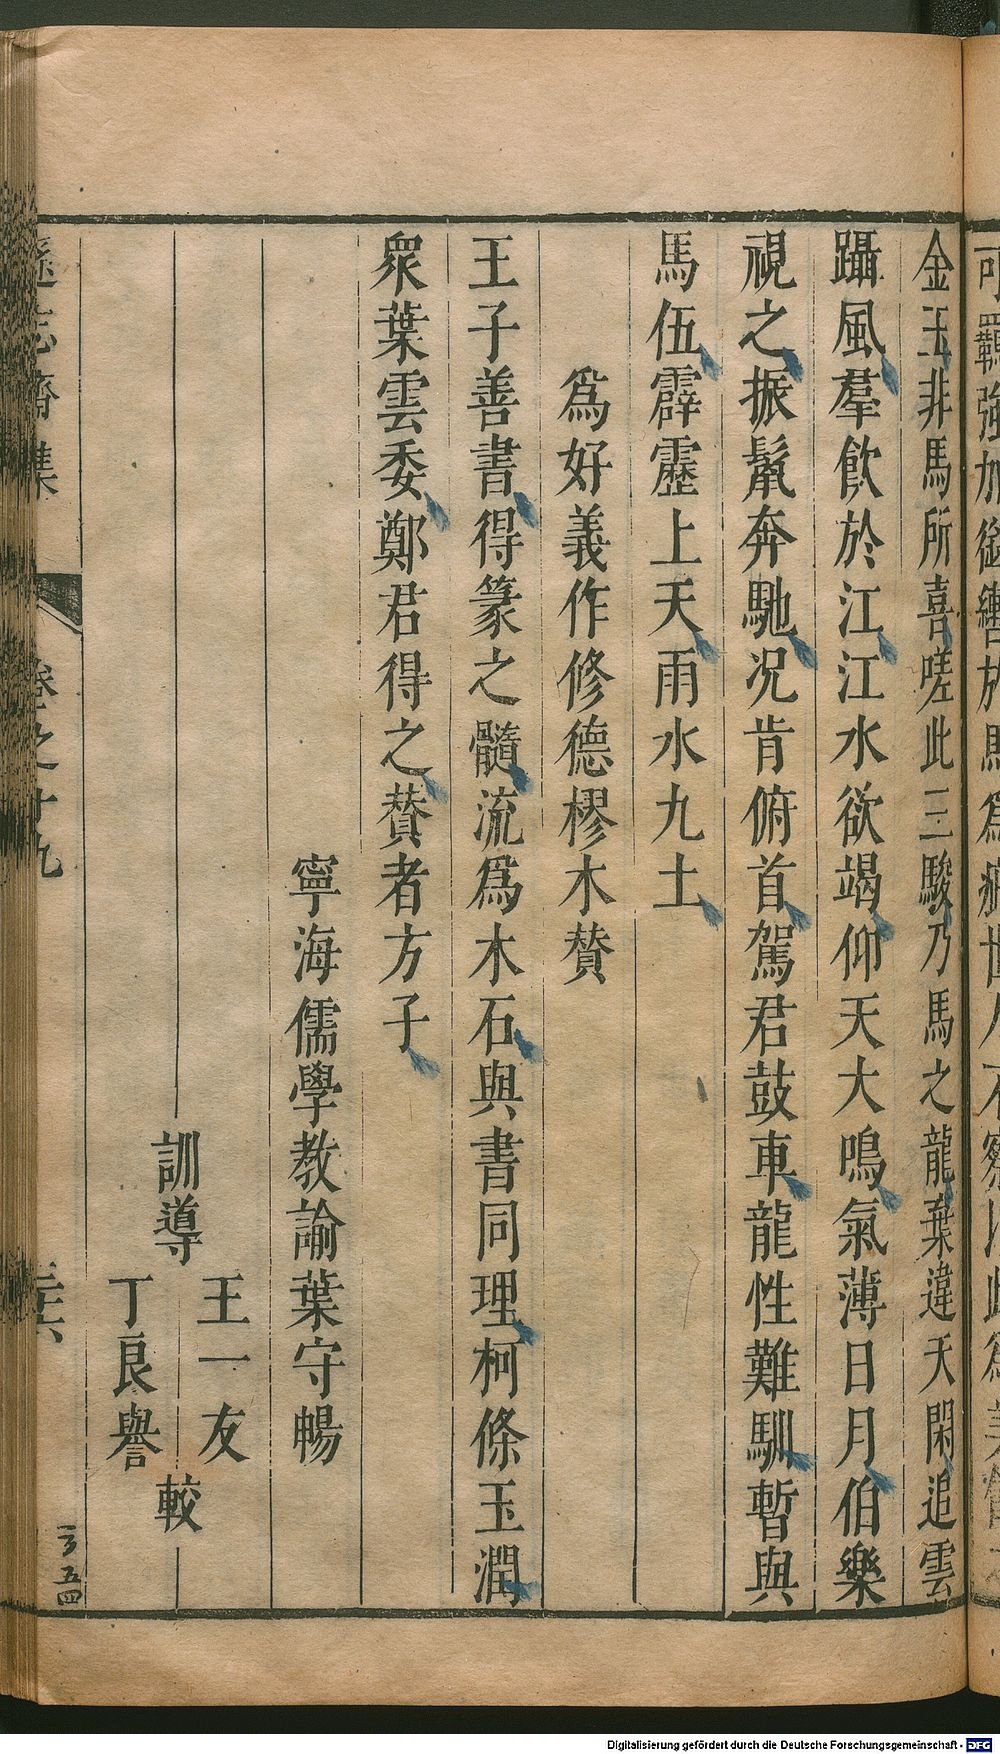 金玉非馬所喜嗟此三駿乃馬之龍葉違天閑追雲
躡風羣飲於江江水欲竭仰天大鳴氣薄日月伯樂
視之振鬣奔馳况肯俯首駕君鼓車龍性難馴暫與
馬伍霹靂上天雨水九土
爲好義作修德樛木贊
王子善書得篆之髓流爲木石與書同理柯條玉潤
衆葉雲委鄭君得之贊者方子
寧海儒學教諭葉守暢
訓導
王一友
丁良譽
較
遜志齋集
卷之十九
三五四
Digitalisierung gefördert durch die Deutsche Forschungsgemeinschaft - DFG